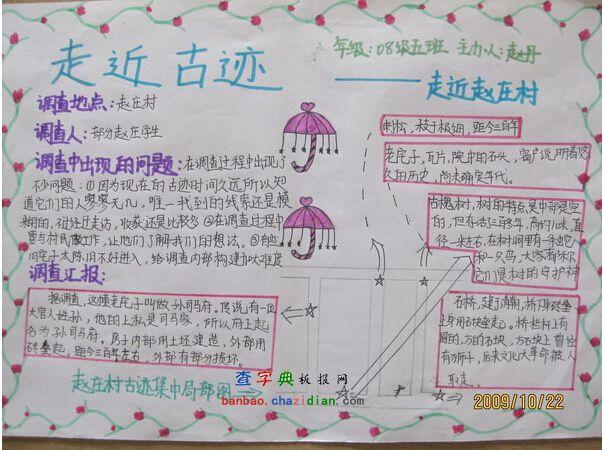 走近古迹
年级:08级五班 主办人:赵丹
——走近赵庄村
调查地点:赵庄村
调查人:部分赵庄学生
调查中出现的问题:在调查过程中出现了
不少问题:①因为现在的古迹时间久远所以知
道它们的人寥寥无几,唯一找到的线索还是模
糊的,不过经过走访,收获还是比较多②在调查过程中
要与村民做工作,让他们了解我们的想法。③有些
旧宅子太陈旧不好进入,给调查内部构建加以难度
调查汇报:
据调查,这幢老宅子叫做孙司马府。传说,有一
大官人姓孙,他的上私是司马家,所以府上起
名为孙司马府。房子内部用土坯建造,外部用
砖垒起。距今三百年左右,外部有部分损坏。
赵庄村古迹集中局部图
刺松,枝干极细,距今三百年
老宅子,瓦片,院中的石头,窗户说明着悠
久的历史,尚未确定年代。
古槐树,树的特点是中部是空
的,但存活三百多年,高约10米,直
径一米左右,在树洞里有一条蛇
和一只鸟,大家都称
它们是树的守护神
石桥,建于清朝,桥用砖垒
上身用石块垒起。桥栏杆上有
圆的,方的石块,方石块上曾经
有狮子,后来文化大革命被人
取走。
查字典板报网
banbao.chazidian.com
2009/10/22